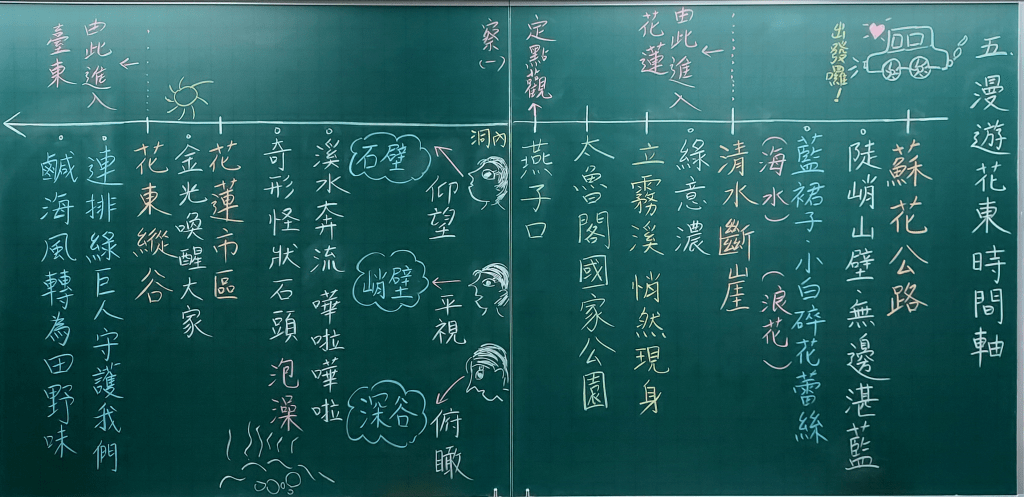 五、漫遊花東時間軸
出發囉！
蘇花公路
陡峭山壁、無邊湛藍
藍裙子、小白碎花蕾絲
（海水）（浪花）
由此進入
花蓮
清水斷崖
綠意濃
立霧溪 悄然現身
太魯閣國家公園
定點觀
察(一)
燕子口
洞內
仰望
石壁
平視
峭壁
俯瞰
深谷
溪水奔流 嘩啦嘩啦
奇形怪狀石頭 泡澡
花蓮市區
金光喚醒大家
由此進入
臺東
花東縱谷
連排綠巨人守護我們
鹹海風轉為田野味